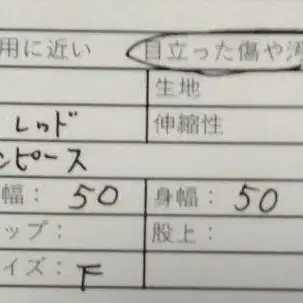 用に近い 目立った傷や汚
生地
レッド 伸縮性
ンピース
幅： 50 身幅： 50
ップ： 股上：
イズ： F